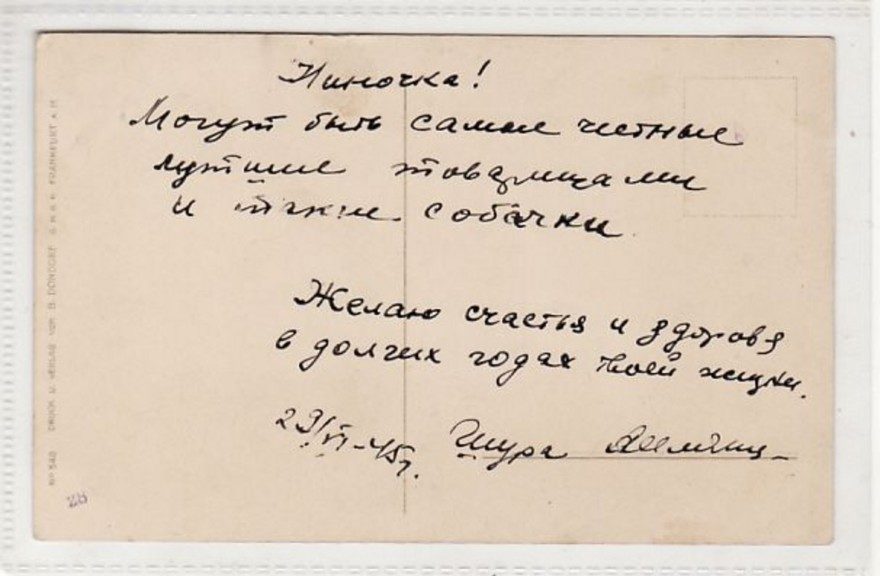 Ниночка!
Могут быть самые честные
лутшие товарищами
и такие собачки
Желаю счастья и здоровя
в долгих годах твоей жизни.
29/VI-45г.
Шура
DRUCK U. VERLAG von B. DONDORF G.M.B.H. FRANKFURT A. M.